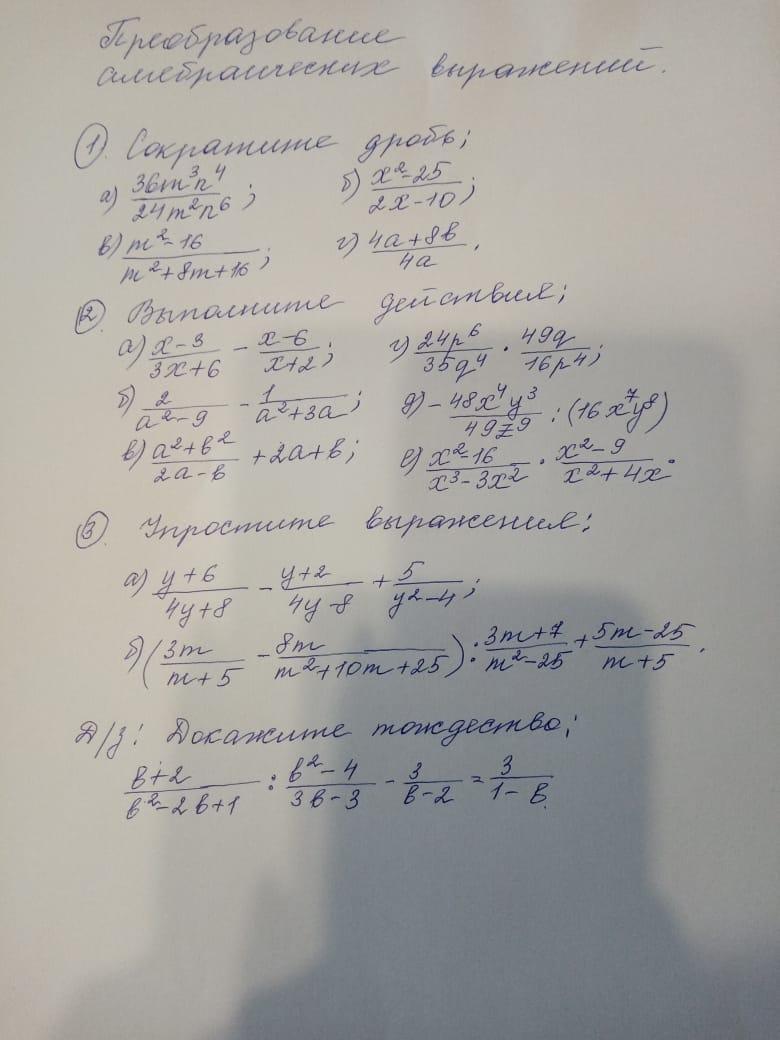 Преобразование
алгебраических выражений.
① Сократите дробь;
а) 36m³n⁴/24m²n⁶; б) x²-25/2x-10;
в) m²-16/m²+8m+16; г) 4a+8b/4a.
② Выполните действия;
а) x-3/3x+6 - x-6/x+2; г) 24p⁶/35q⁴ · 49q/16p⁴;
б) 2/a²-9 - 1/a²+3a; д) -48x⁴y³/49z⁹ : (16x⁷y⁸)
в) a²+b²/2a-b + 2a+b; е) x²-16/x³-3x² · x²-9/x²+4x.
③ Упростите выражения:
а) y+6/4y+8 - y+2/4y-8 + 5/y²-4;
б) (3m/m+5 - 8m/m²+10m+25) : 3m+7/m²-25 + 5m-25/m+5.
Д/з: Докажите тождество;
b+2/b²-2b+1 : b²-4/3b-3 - 3/b-2 = 3/1-b.